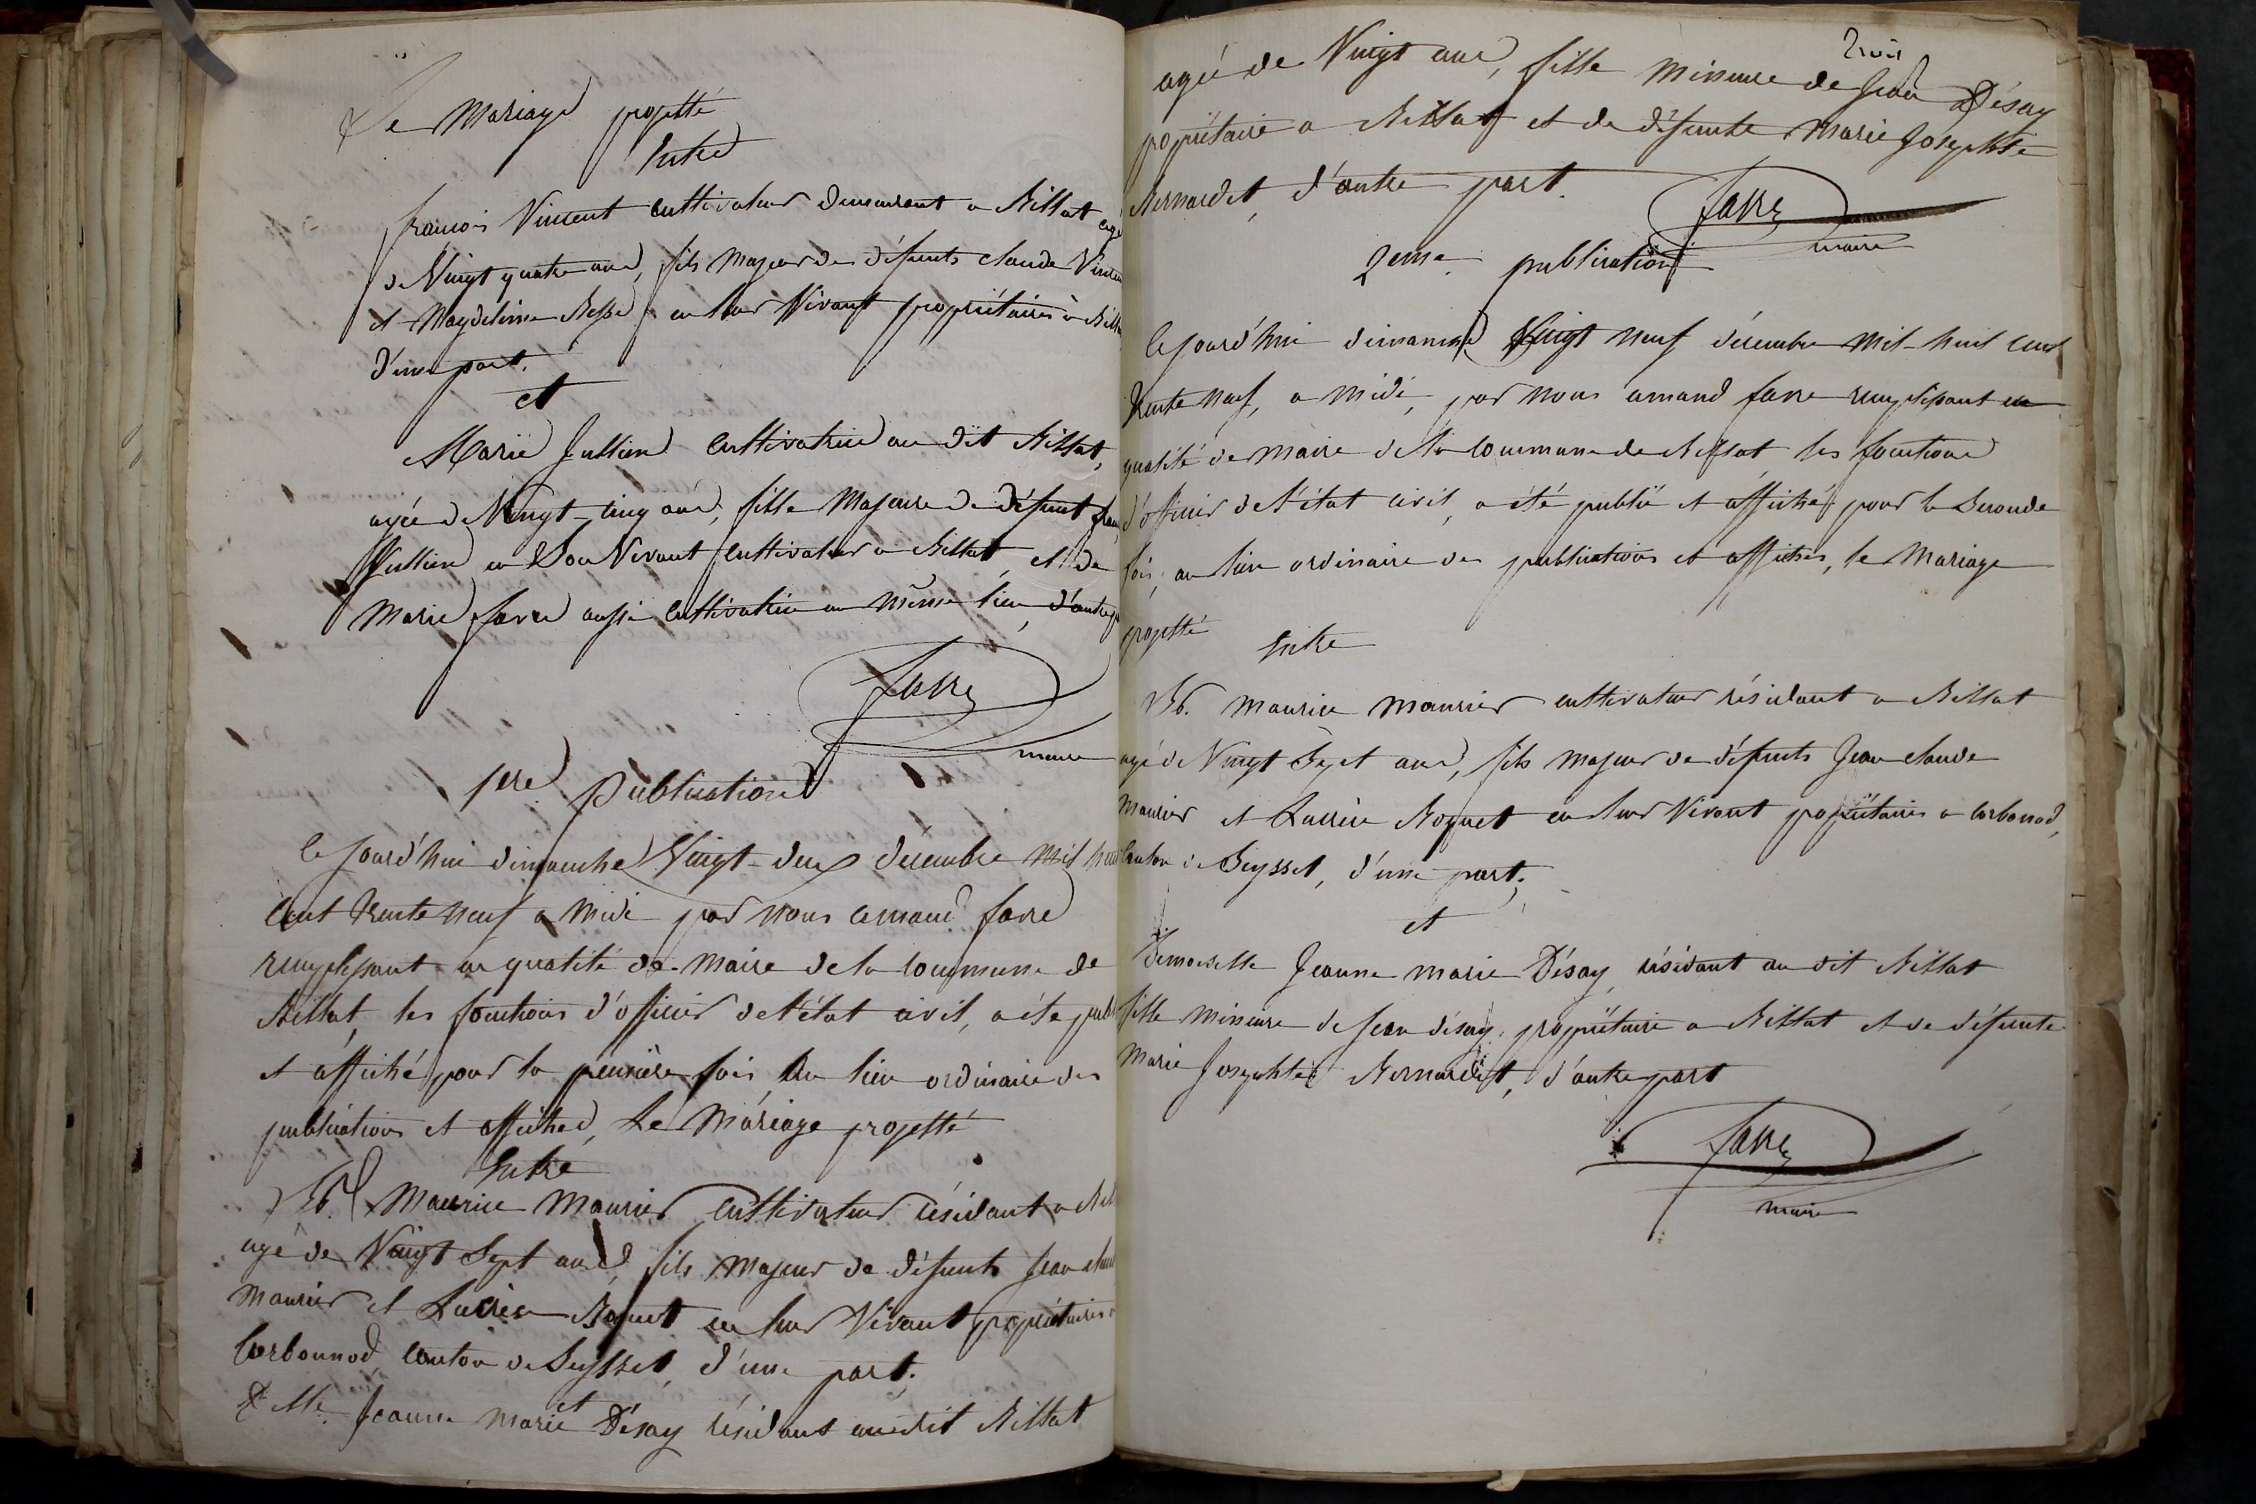 Le Mariage projetté
Entre
françois Vincent cultivateur demeurant a Billiat agé
de Vingt quatre ans, fils majeur de défunts claude Vincent
et Magdeleine Besse en leur Vivant propriétaires à Billiat
d'une part.
et
Marie Jullien cultivatrice au dit Billiat,
agée de Vingt-cinq ans, fille Majeure de défunt
Jullien en Son Vivant cultivateur a Billiat, et de
Marie favre aussi cultivatrice au même lieu, d'autre
favre
maire
1ere Publication
Cejourd'hui dimanche Vingt-deux décembre mil huit
cent trente neuf a midi par nous amand favre
remplissant en qualité de maire de la commune de
Billiat, les fonctions d'officier de l'état civil, a été publié
et affiché pour la premiere fois au lieu ordinaire des
publications et affiches, Le Mariage projetté
Entre
Sr. Maurice Maurier cultivateur résidant a
agé de Vingt Sept ans, fils majeur de défunts Jean claude
Maurier et Lucrèce Boquet en leur Vivant propriétaires a
Corbonnod, canton de Seyssel, d'une part,
et
Delle. Jeanne marie Désay résidant audit Billiat
trois
agée de Vingt ans, fille mineure de Jean Désay
popriétaire a Billiat et de défunte Marie Josephte
Bernardet, d'autre part.
favre
maire
2eme publication
Cejourd'hui dimanche Vingt neuf décembre mil-huit cent
trente neuf, a midi, par nous amand favre remplissant en
qualité de maire de la commune de Billiat les fonctions
d'officier de l'état civil, a été publié et affiché, pour la Seconde
fois, au lieu ordinaire des publications et affiches, le Mariage
projetté
Entre
Sr. Maurice Maurier cultivateur résidant a Billiat
agé de Vingt Sept ans, fils majeur de défunts Jean claude
Maurier et Lucrèce Boquet en leur Vivant popriétaires a Corbonod,
Canton de Seyssel, d'une part,
et
Demoiselle Jeanne marie Désay, résidant au dit Billiat
fille mineure de Jean désay propriétaire a Billiat et de défunte
Marie Josephte Bernardet, d'autre part
favre
maire